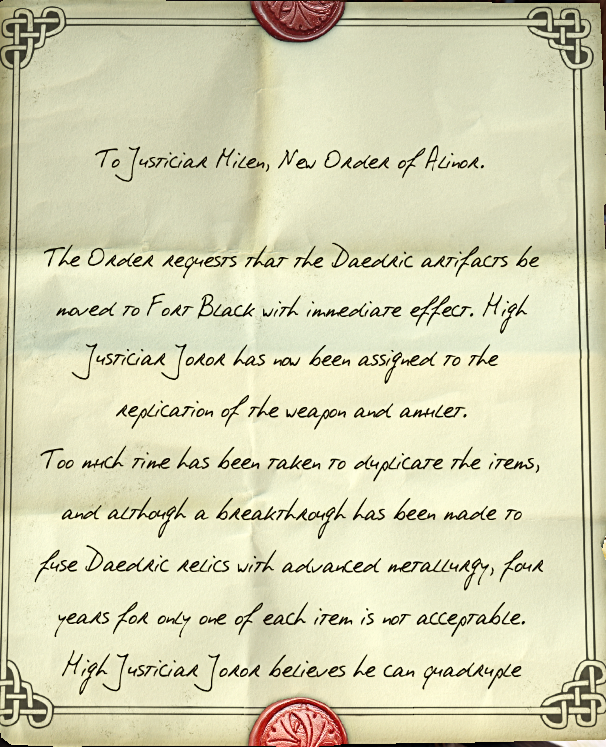 To Justiciar Hilen, New Order of Alinor.
The Order requests that the Daedric artifacts be
moved to Fort Black with immediate effect. High
Justiciar Joror has now been assigned to the
replication of the weapon and amulet.
Too much time has been taken to duplicate the items,
and although a breakthrough has been made to
fuse Daedric relics with advanced metallurgy, four
years for only one of each item is not acceptable.
High Justiciar Joror believes he can quadruple